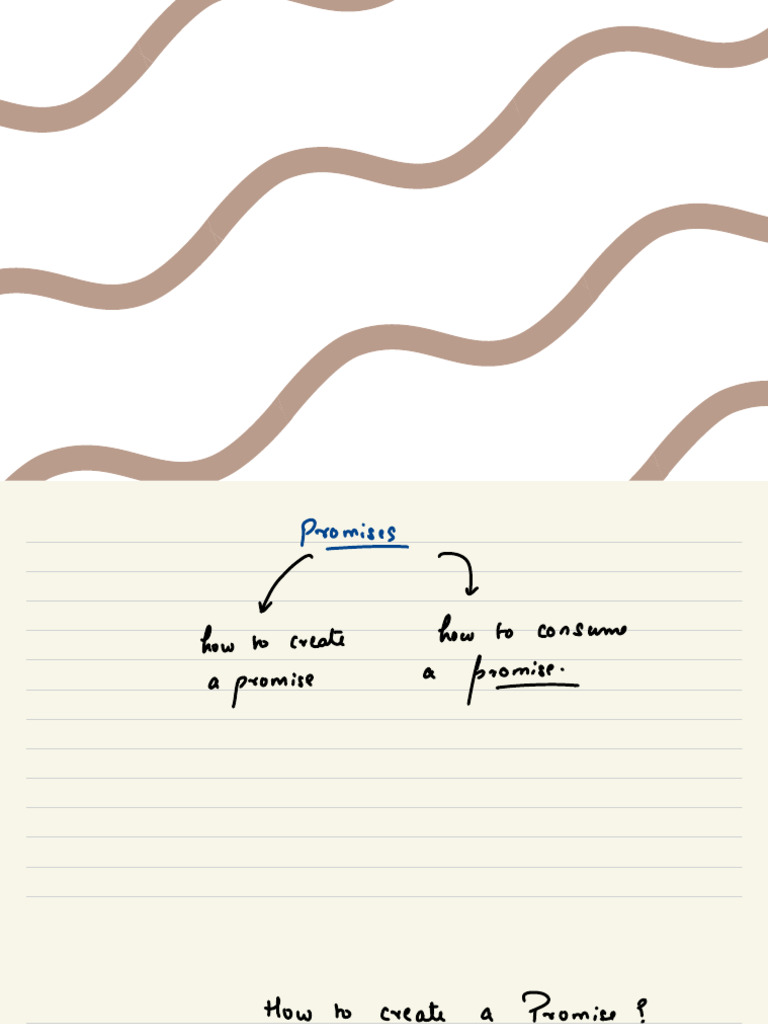 Promises
how to create
a promise
how to consume
a promise.
How to create a Promise?